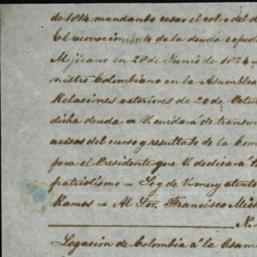 de 1814 mandando cesar el cobro del d
El reconocimiento de la deuda exped
Mejicano en 28 de Junio de 1824 -
nistro Colombiano en la Asamblea
Relaciones exteriores de 20 de Octu
dicha deuda - U cuidará de transm
acisos del curso y resultado de la com
para el Presidente que U dedicará t
patriotismo - Soy de U muy atento
Ramos - Al Sor. Francisco Mich
N.
Legacion de Colombia á la Asam